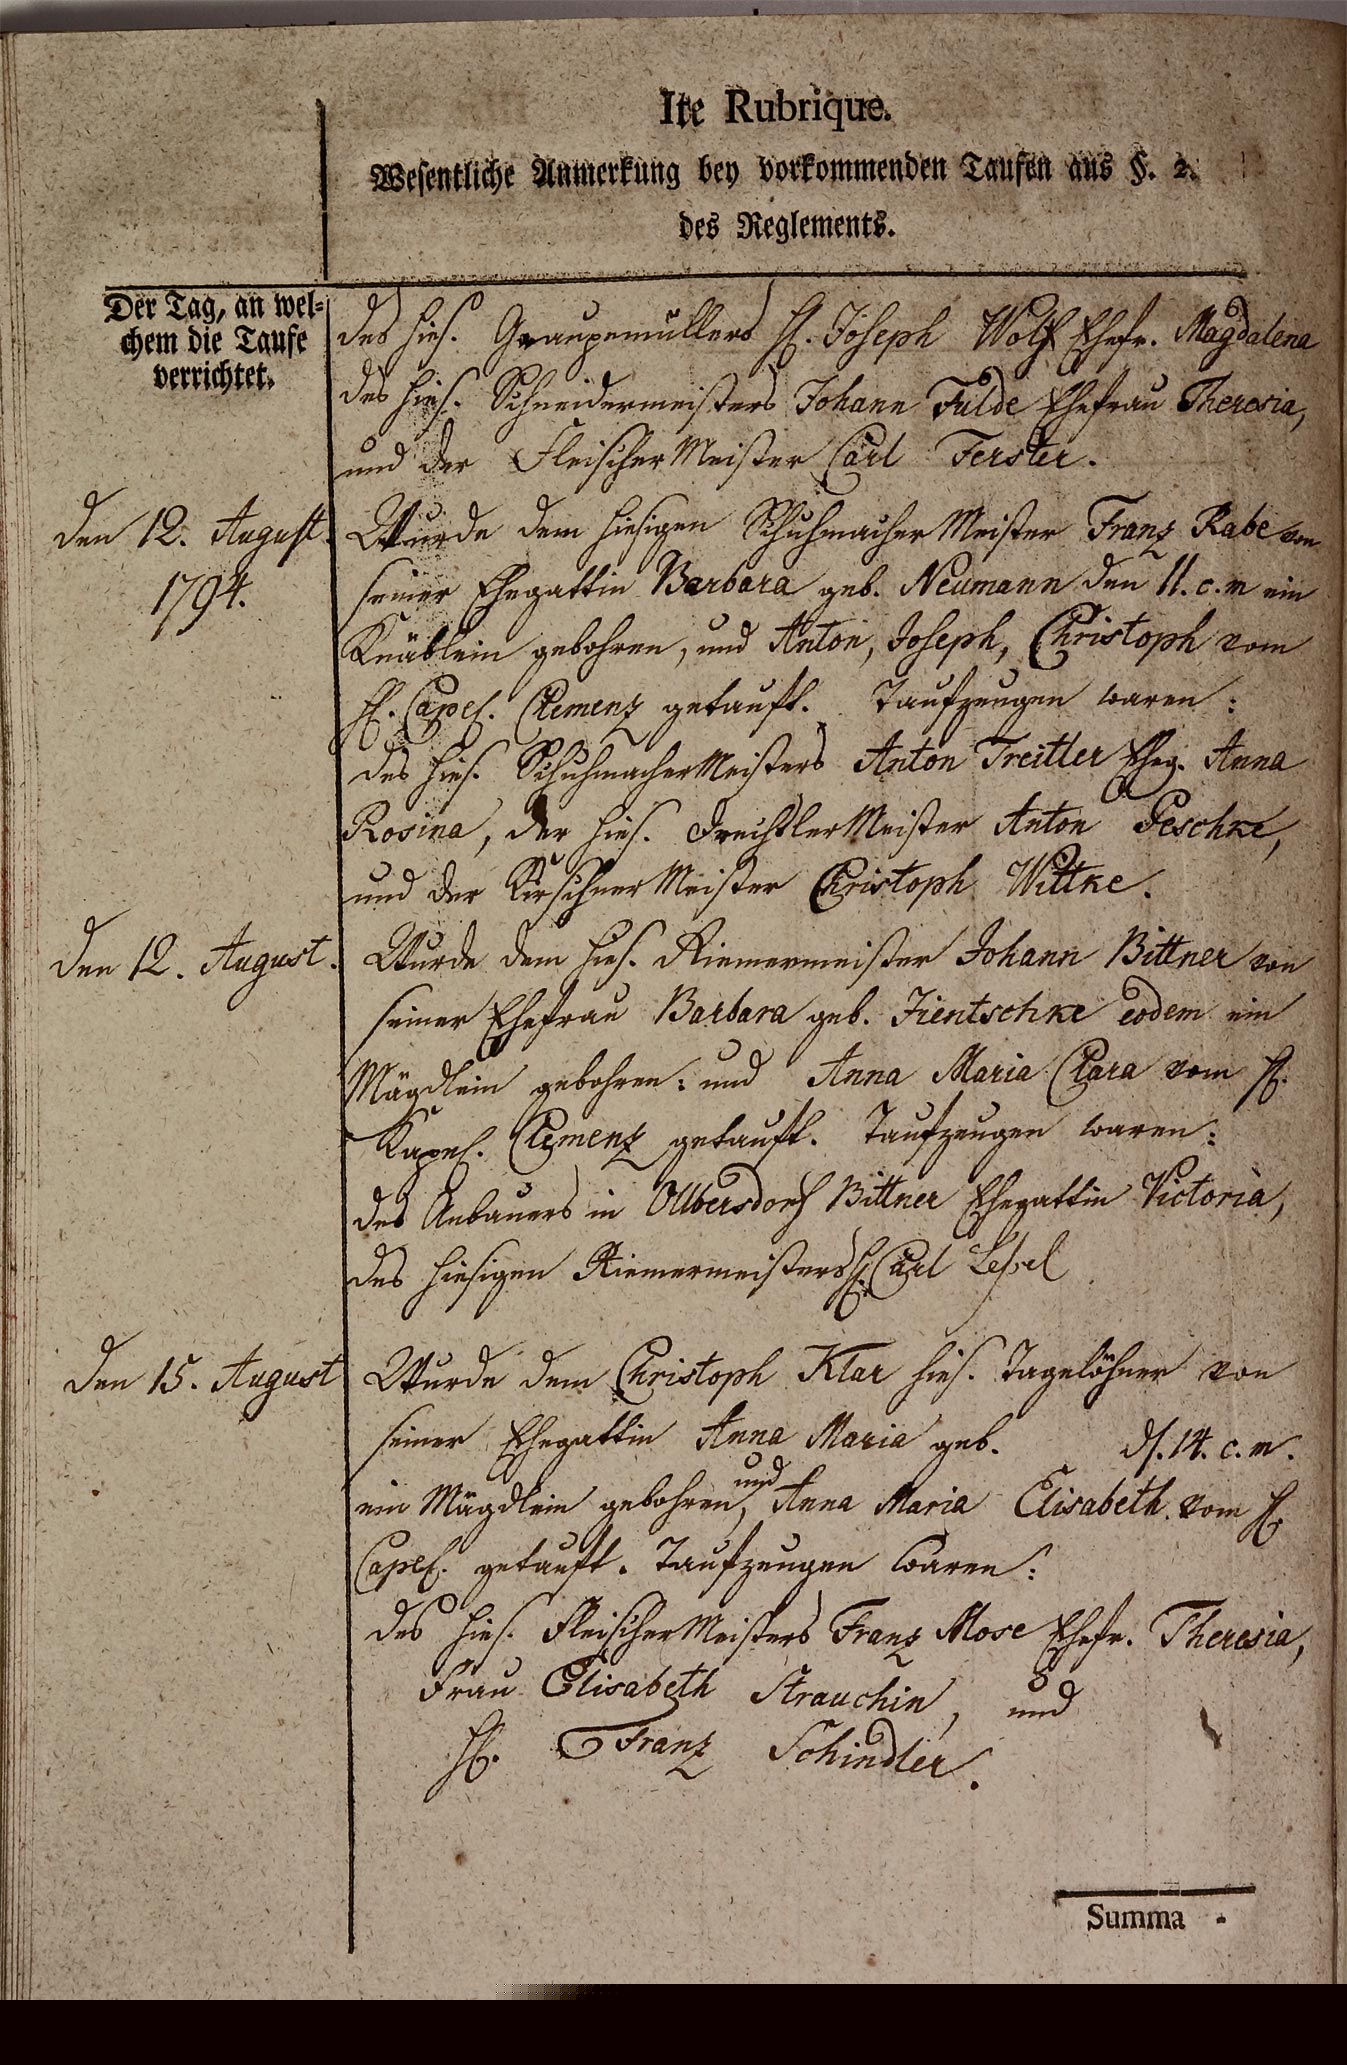 Ite Rubrique.
Wesentliche Anmerkung bey vorkommenden Taufen aus §. 2.
des Reglements.
Der Tag, an wel-
chem die Taufe
verrichtet.
des hies. Graupemüllers H. Joseph Wolf Ehefr. Magdalena
des hies. Schneidermeisters Johann Fulde Ehefrau Theresia,
und der Fleischer Meister Carl Ferster.
den 12. August. Wurde dem hiesigen Schuhmacher Meister Franz Rabe von
1794. seiner Ehegattin Barbara geb. Neumann den 11. c. m ein
Knäblein gebohren, und Anton, Joseph, Christoph vom
H. Capel. Clemenz getauft. Taufzeugen waren:
des hies. Schuhmacher Meisters Anton Treitler Eheg. Anna
Rosina, der hies. Drechsler Meister Anton Peschke,
und der Kirschner Meister Christoph Wittke.
den 12. August. Wurde dem hies. Riemermeister Johann Bittner von
seiner Ehefrau Barbara geb. Zientschke eodem ein
Mägdlein gebohren: und Anna Maria Clara vom H.
Kapel. Clemenz getauft. Taufzeugen waren:
des Anbauers in Olbersdorf Bittner Ehegattin Victoria,
des hiesigen Riemermeisters H. Carl
den 15. August Wurde dem Christoph Klar hies. Tagelöhner von
seiner Ehegattin Anna Maria geb. d. 14. c. m.
ein Mägdlein gebohren, und Anna Maria Elisabeth vom H.
Capel. getauft. Taufzeugen waren:
des hies. Fleischer Meisters Franz Mose Ehefr. Theresia,
Frau Elisabeth Strauchin, und
H. Franz Schindler.
Summa -